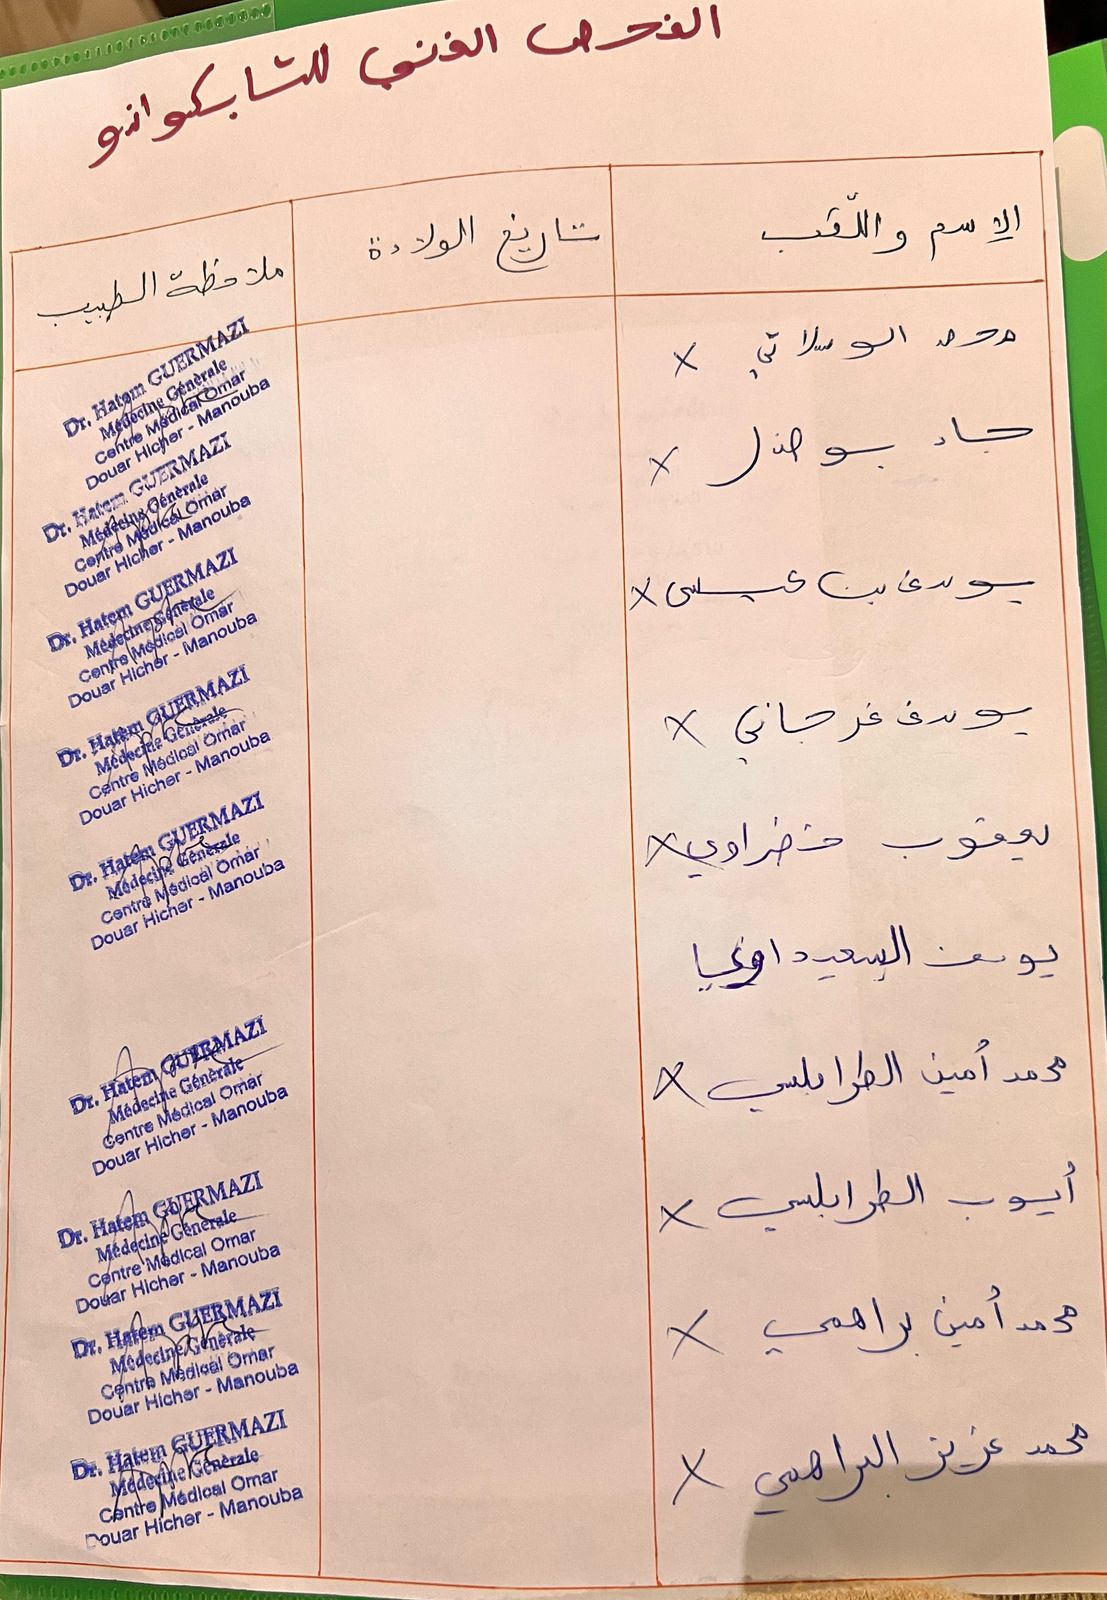 الفحص الفني للشابكواندو
الإسم واللّقب
تاريخ الولادة
ملاحظة الطبيب
محمد الوسلاتي X
Dr. Hatem GUERMAZI
Médecine Générale
Centre Médical Omar
Douar Hicher - Manouba
جاد بو X
Dr. Hatem GUERMAZI
Médecine Générale
Centre Médical Omar
Douar Hicher - Manouba
يوسف بن عيسى X
Dr. Hatem GUERMAZI
Médecine Générale
Centre Médical Omar
Douar Hicher - Manouba
يوسف فرجاني X
Dr. Hatem GUERMAZI
Médecine Générale
Centre Médical Omar
Douar Hicher - Manouba
يعقوب خضراوي X
Dr. Hatem GUERMAZI
Médecine Générale
Centre Médical Omar
Douar Hicher - Manouba
يوسف السعيداوي
محمد أمين الطرابلسي X
Dr. Hatem GUERMAZI
Médecine Générale
Centre Médical Omar
Douar Hicher - Manouba
أيوب الطرابلسي X
Dr. Hatem GUERMAZI
Médecine Générale
Centre Médical Omar
Douar Hicher - Manouba
محمد أمين براهمي X
Dr. Hatem GUERMAZI
Médecine Générale
Centre Médical Omar
Douar Hicher - Manouba
محمد عزيز البراهمي X
Dr. Hatem GUERMAZI
Médecine Générale
Centre Médical Omar
Douar Hicher - Manouba